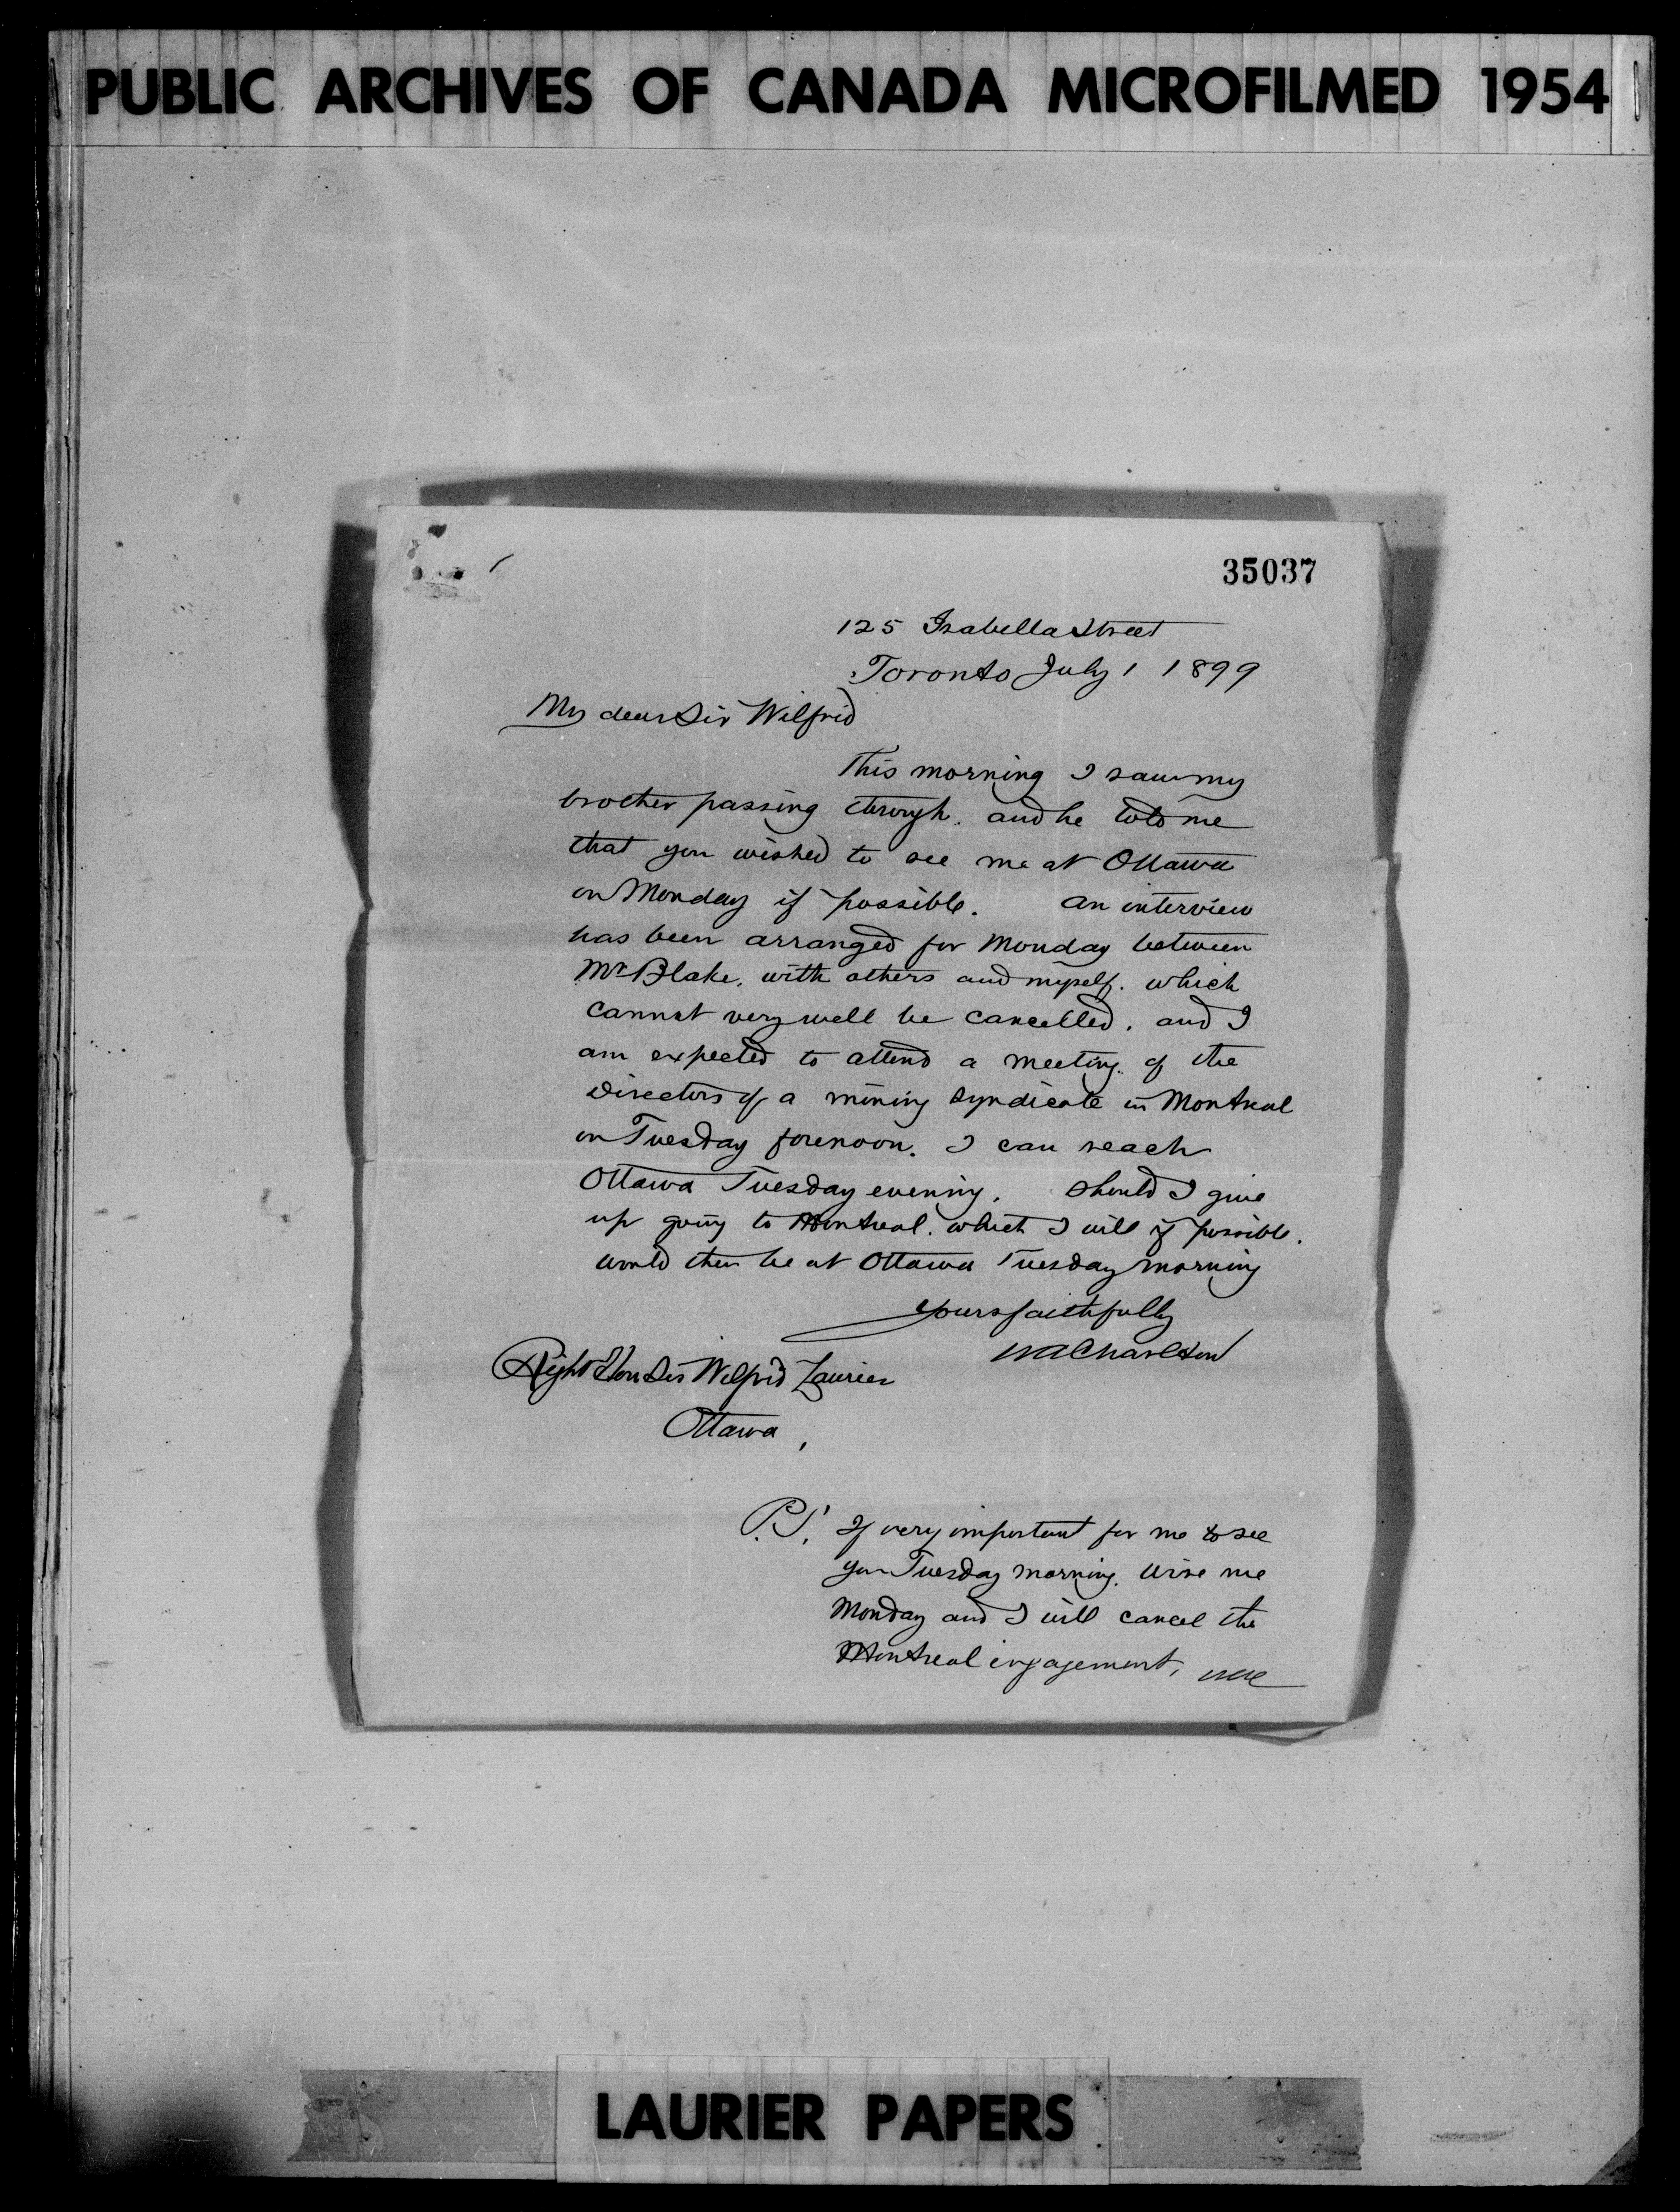 PUBLIC ARCHIVES OF CANADA MICROFILMED 1954
35037
125 Isabella Street
Toronto July 1 1899
My dear Sir Wilfrid
This morning I saw my
brother passing through. and he told me
that you wished to see me at Ottawa
on Monday if possible. An interview
has been arranged for Monday between
Mr Blake, with others and myself. which
cannot very well be cancelled, and I
am expected to attend a meeting of the
Directors of a mining Syndicate in Montreal
on Tuesday forenoon. I can reach
Ottawa Tuesday evening. Should I give
up going to Montreal. which I will if possible.
would then be at Ottawa Tuesday morning
Yours faithfully
WA Charlton
Right Hon Sir Wilfrid Laurier
Ottawa,
P.S. If very important for me to see
you Tuesday morning. Wire me
Monday and I will cancel the
Montreal engagement, WAC
LAURIER PAPERS